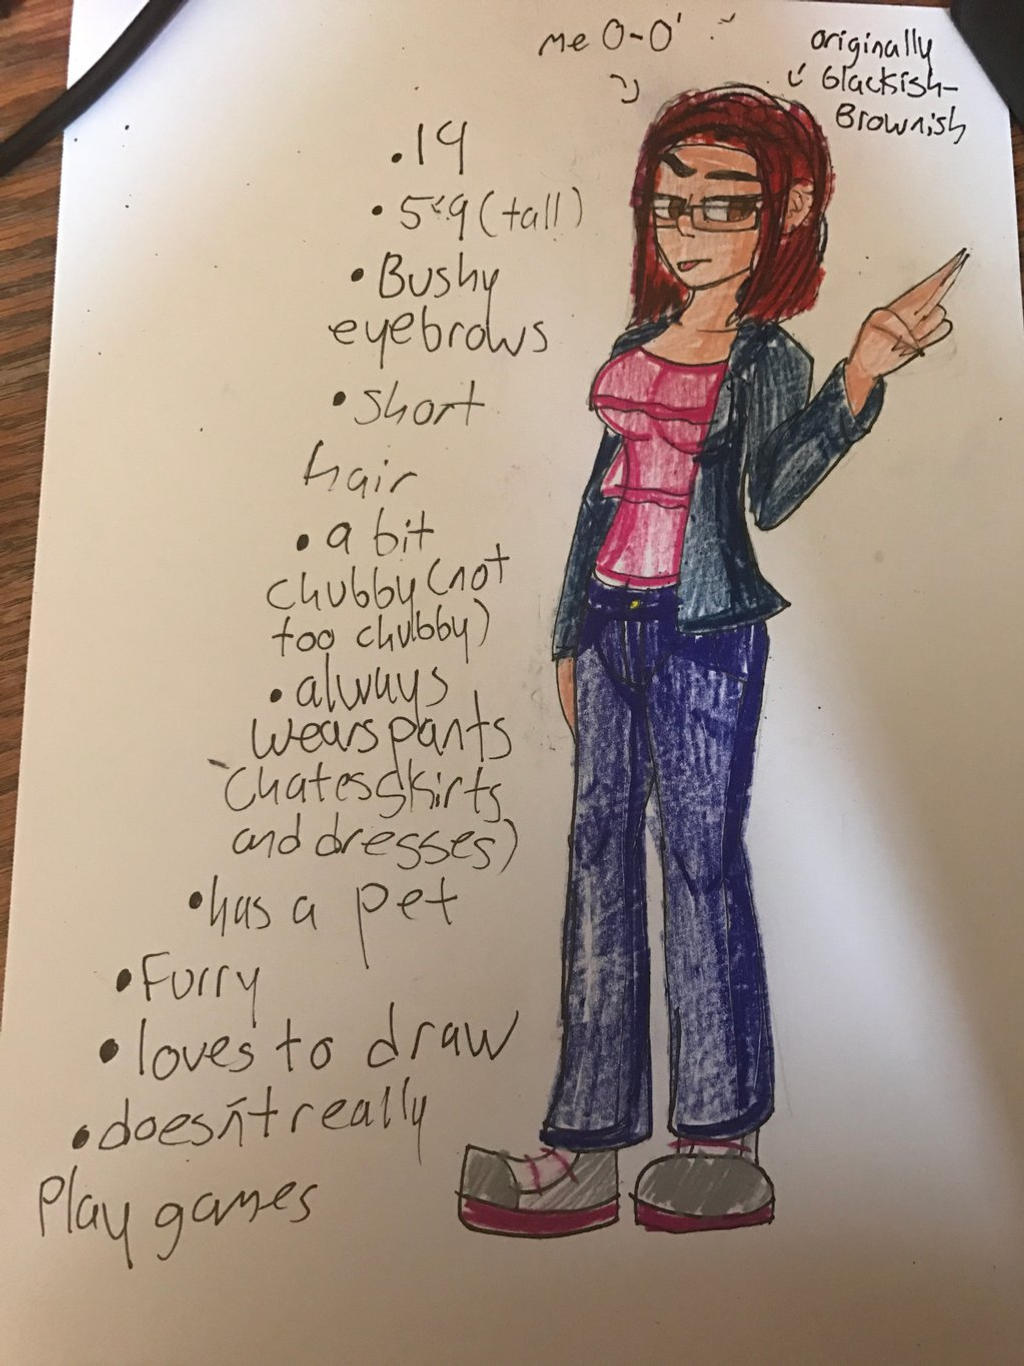 me O-O'
originally
blackish-
Brownish
.19
• 5"9 (tall)
• Bushy
eyebrows
• short
hair
• a bit
chubby (not
too chubby)
• always
wears pants
(hates skirts
and dresses)
• has a pet
• Furry
• loves to draw
• doesn't really
Play games